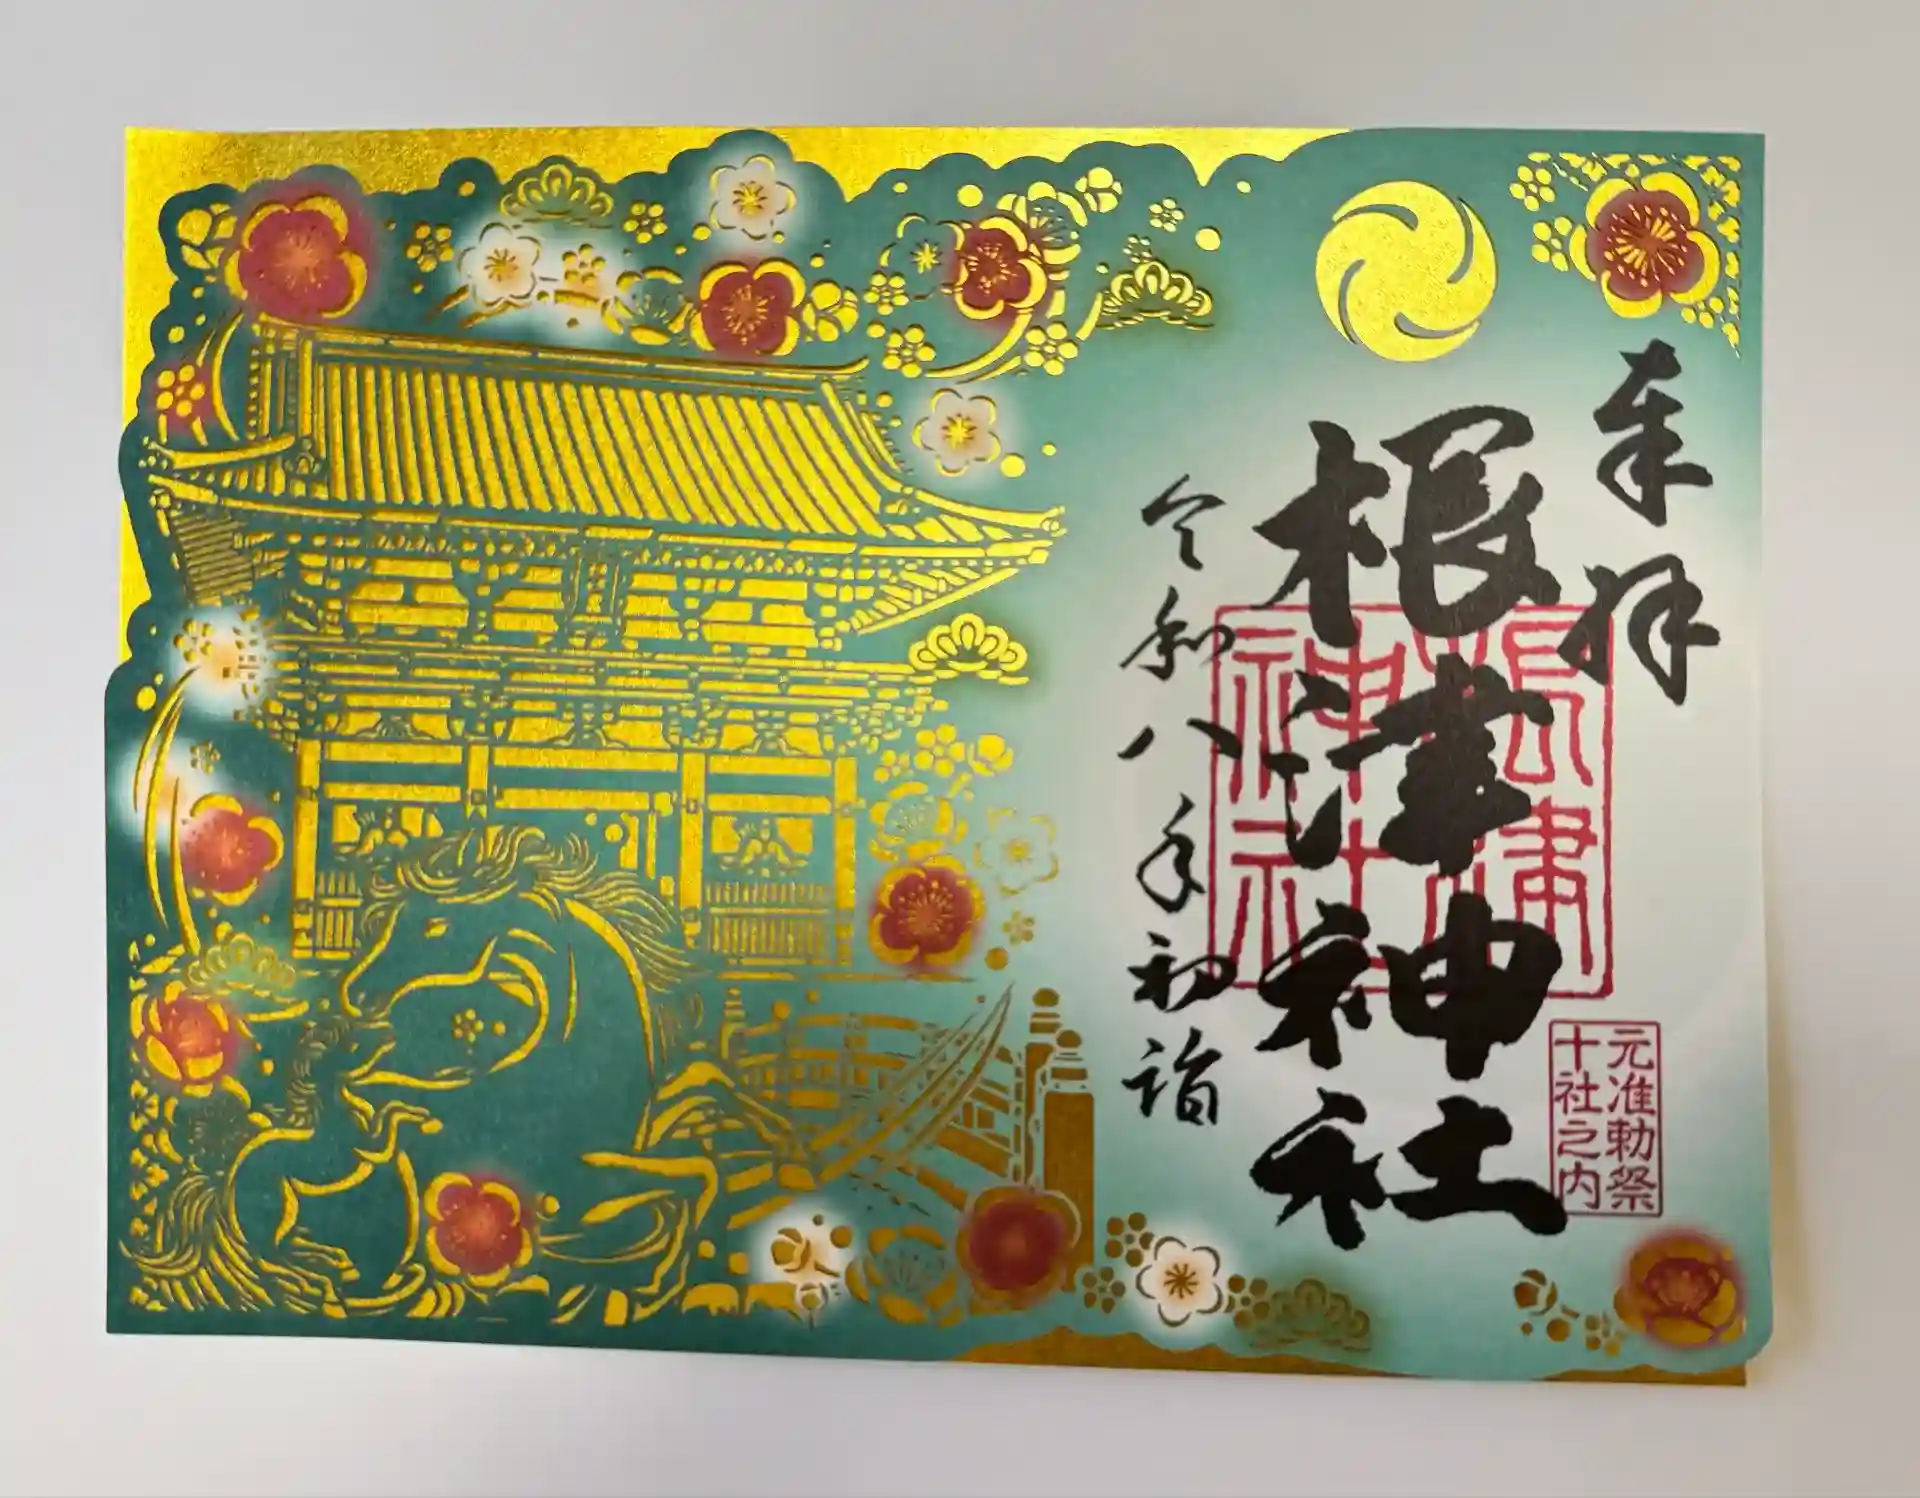 奉拝
根津神社
令和八年初詣
根津
神社
元准勅祭
十社之内